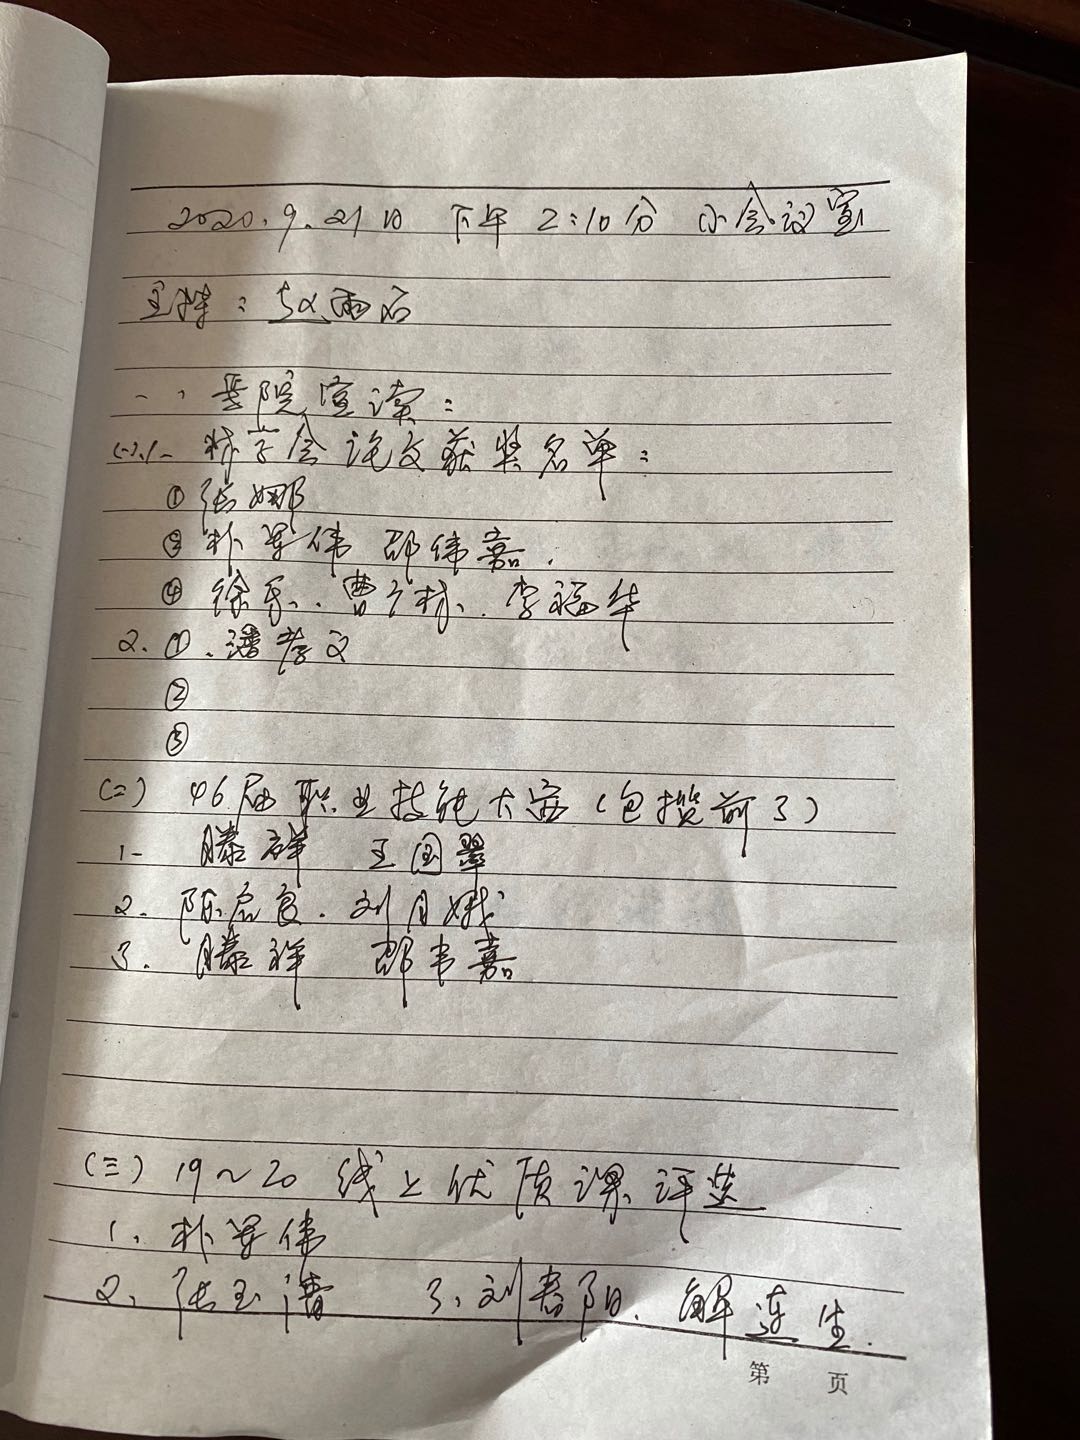 2020.9.21日 下午 2:10分 小会议室
主持：赵雨石
一、 院宣读：
(一).1- 学会论文获奖名单：
①张娜
③朴军伟 邵伟嘉.
④徐 . 曹广林. 李福华
2.①.潘孝文
②
③
(二) 46届职业技能大赛(包揽前3)
1- 滕祥 王国翠
2. 陈启良. 刘月娥
3. 滕祥 邵韦嘉
(三) 19~20 线上优质课评选
1. 朴军伟
2. 张玉清 3. 刘春阳. 解连生.
第 页